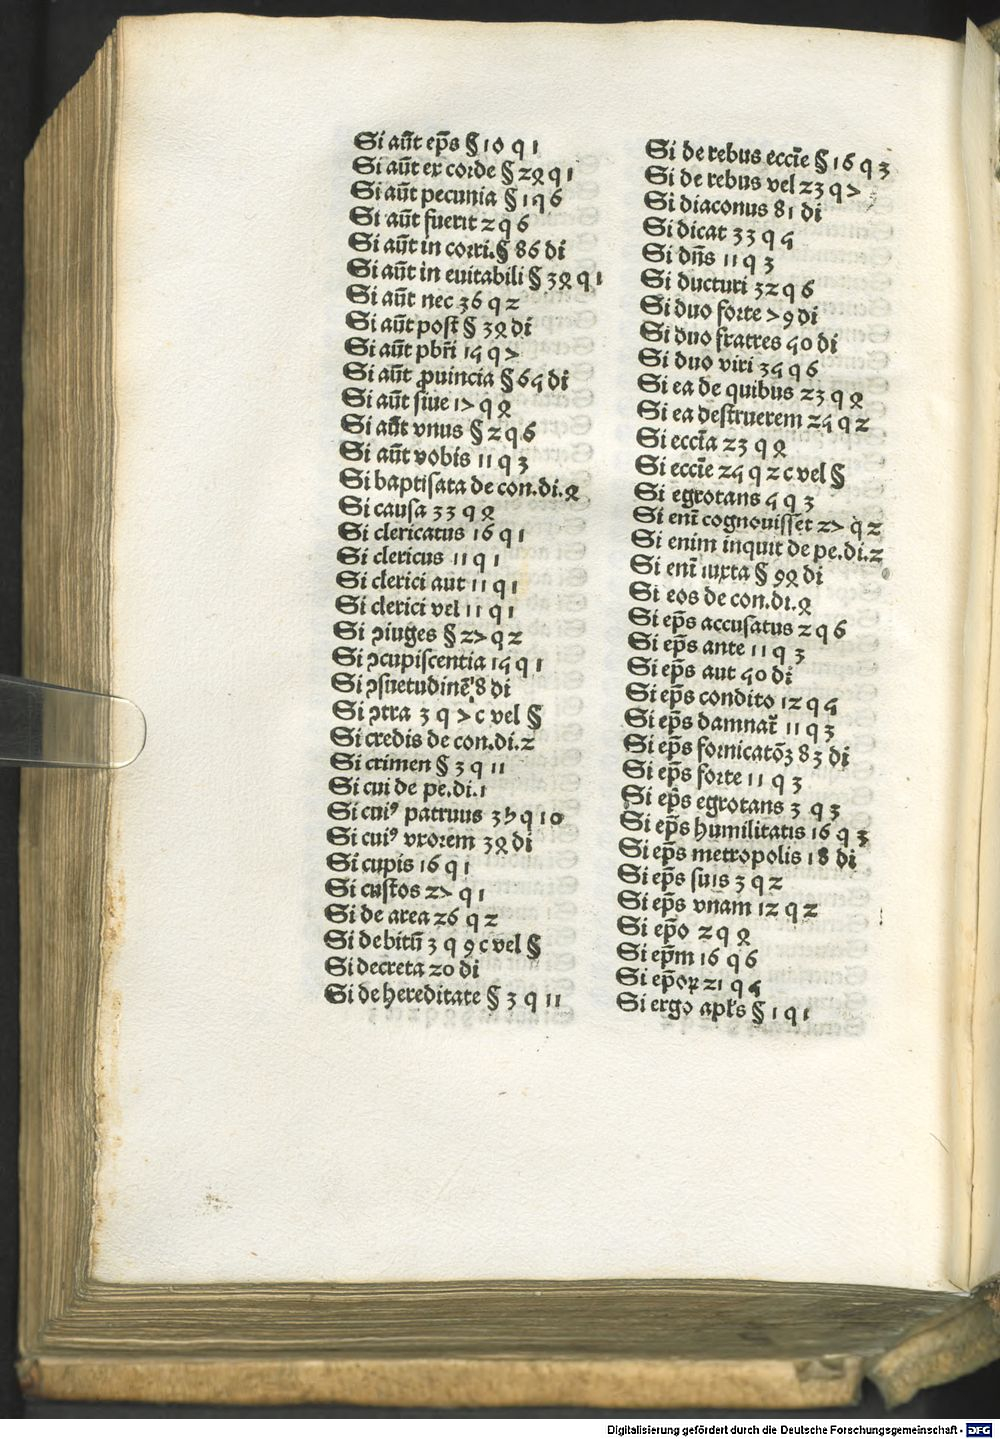 Si aūt ep̄s § 10 q 1
Si aūt ex corde § 22 q 1
Si aūt pecunia § 1 q 6
Si aūt fuerit 2 q 6
Si aūt in corri. § 86 di
Si aūt in euitabili § 32 q 1
Si aūt nec 36 q 2
Si aūt post § 32 di
Si aūt pbr̄i 14 q 7
Si aūt ꝓuincia § 64 di
Si aūt siue 17 q 2
Si aūt vnus § 2 q 6
Si aūt vobis 11 q 3
Si baptisata de con.di.2
Si causa 33 q 2
Si clericatus 16 q 1
Si clericus 11 q 1
Si clerici aut 11 q 1
Si clerici vel 11 q 1
Si ꝯiuges § 27 q 2
Si ꝯcupiscentia 14 q 1
Si ꝯsuetudinē 8 di
Si ꝯtra 3 q 7 c vel §
Si credis de con.di.2
Si crimen § 3 q 11
Si cui de pe.di.1
Si cuiꝰ patruus 35 q 10
Si cuiꝰ vxorem 32 di
Si cupis 16 q 1
Si custos 27 q 1
Si de area 26 q 2
Si debitū 3 q 9 c vel §
Si decreta 20 di
Si de hereditate § 3 q 11
Si de rebus ecc̄ie § 16 q 3
Si de rebus vel 23 q 7
Si diaconus 81 di
Si dicat 33 q 4
Si dn̄s 11 q 3
Si ducturi 32 q 6
Si duo forte 79 di
Si duo fratres 40 di
Si duo viri 34 q 6
Si ea de quibus 23 q 2
Si ea destruerem 24 q 2
Si ecc̄ia 23 q 2
Si ecc̄ie 24 q 2 c vel §
Si egrotans 4 q 3
Si enī cognouisset 27 q 2
Si enim inquit de pe.di.2
Si enī iuxta § 92 di
Si eos de con.di.2
Si ep̄s accusatus 2 q 6
Si ep̄s ante 11 q 3
Si ep̄s aut 40 di
Si ep̄s condito 12 q 4
Si ep̄s damnat̄ 11 q 3
Si ep̄s fornicatōꝫ 83 di
Si ep̄s forte 11 q 3
Si ep̄s egrotans 3 q 3
Si ep̄s humilitatis 16 q 3
Si ep̄s metropolis 18 di
Si ep̄s suis 3 q 2
Si ep̄s vnam 12 q 2
Si ep̄o 2 q 2
Si ep̄m 16 q 6
Si ep̄oꝝ 21 q 4
Si ergo apl̄s § 1 q 1
Digitalisierung gefördert durch die Deutsche Forschungsgemeinschaft - DFG